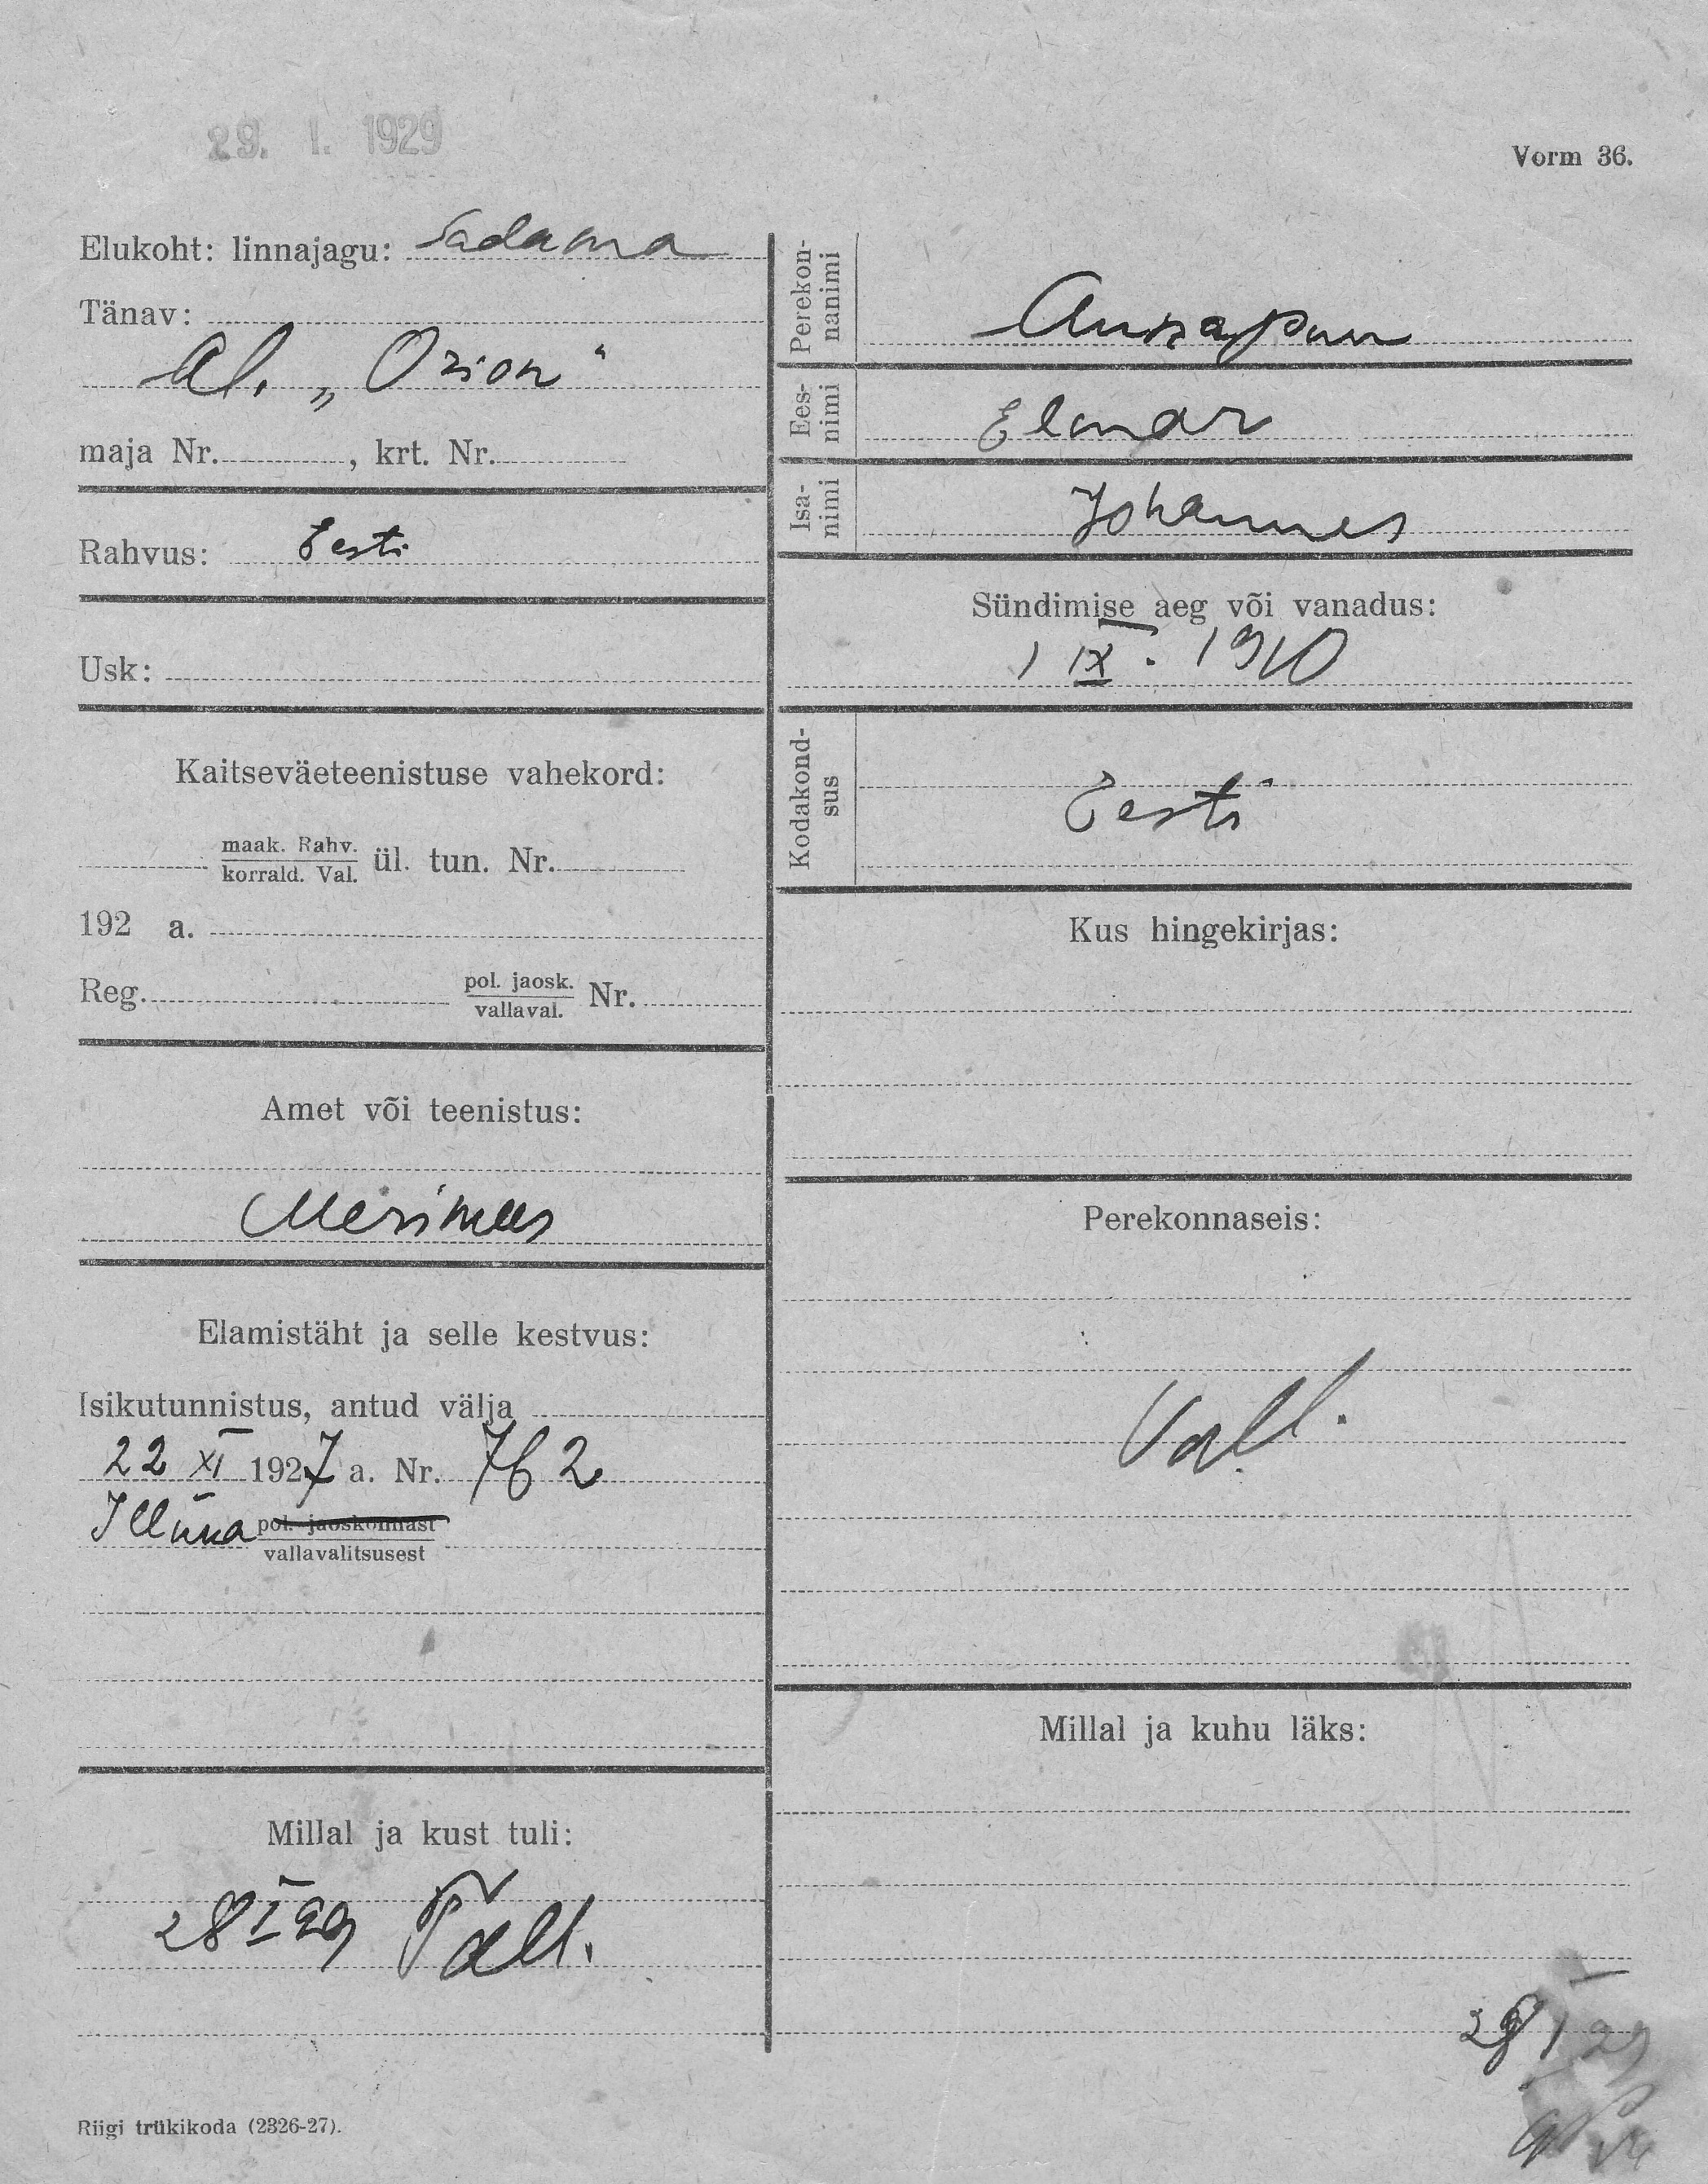 29. I. 1929
Vorm 36.
Elukoht: linnajagu: Sadama
Tänav:
Al. „Orion“
maja Nr. , krt. Nr.
Rahvus: Eesti
Usk:
Kaitseväeteenistuse vahekord:
maak. Rahv.
korrald. Val. ül. tun. Nr.
192 a.
Reg. pol. jaosk.
vallaval. Nr.
Amet või teenistus:
Merimees
Elamistäht ja selle kestvus:
Isikutunnistus, antud välja
22 XI 1927 a. Nr. 762
Illuka pol. jaoskonnast
vallavalitsusest
Millal ja kust tuli:
28 I 29 Tall.
Riigi trükikoda (2326-27).
Perekon-
nanimi
Annapuu
Ees-
nimi
Elmar
Isa-
nimi
Johannes
Sündimise aeg või vanadus:
1 IX. 1910
Kodakond-
sus
Eesti
Kus hingekirjas:
Perekonnaseis:
Vall.
Millal ja kuhu läks:
29 I 29